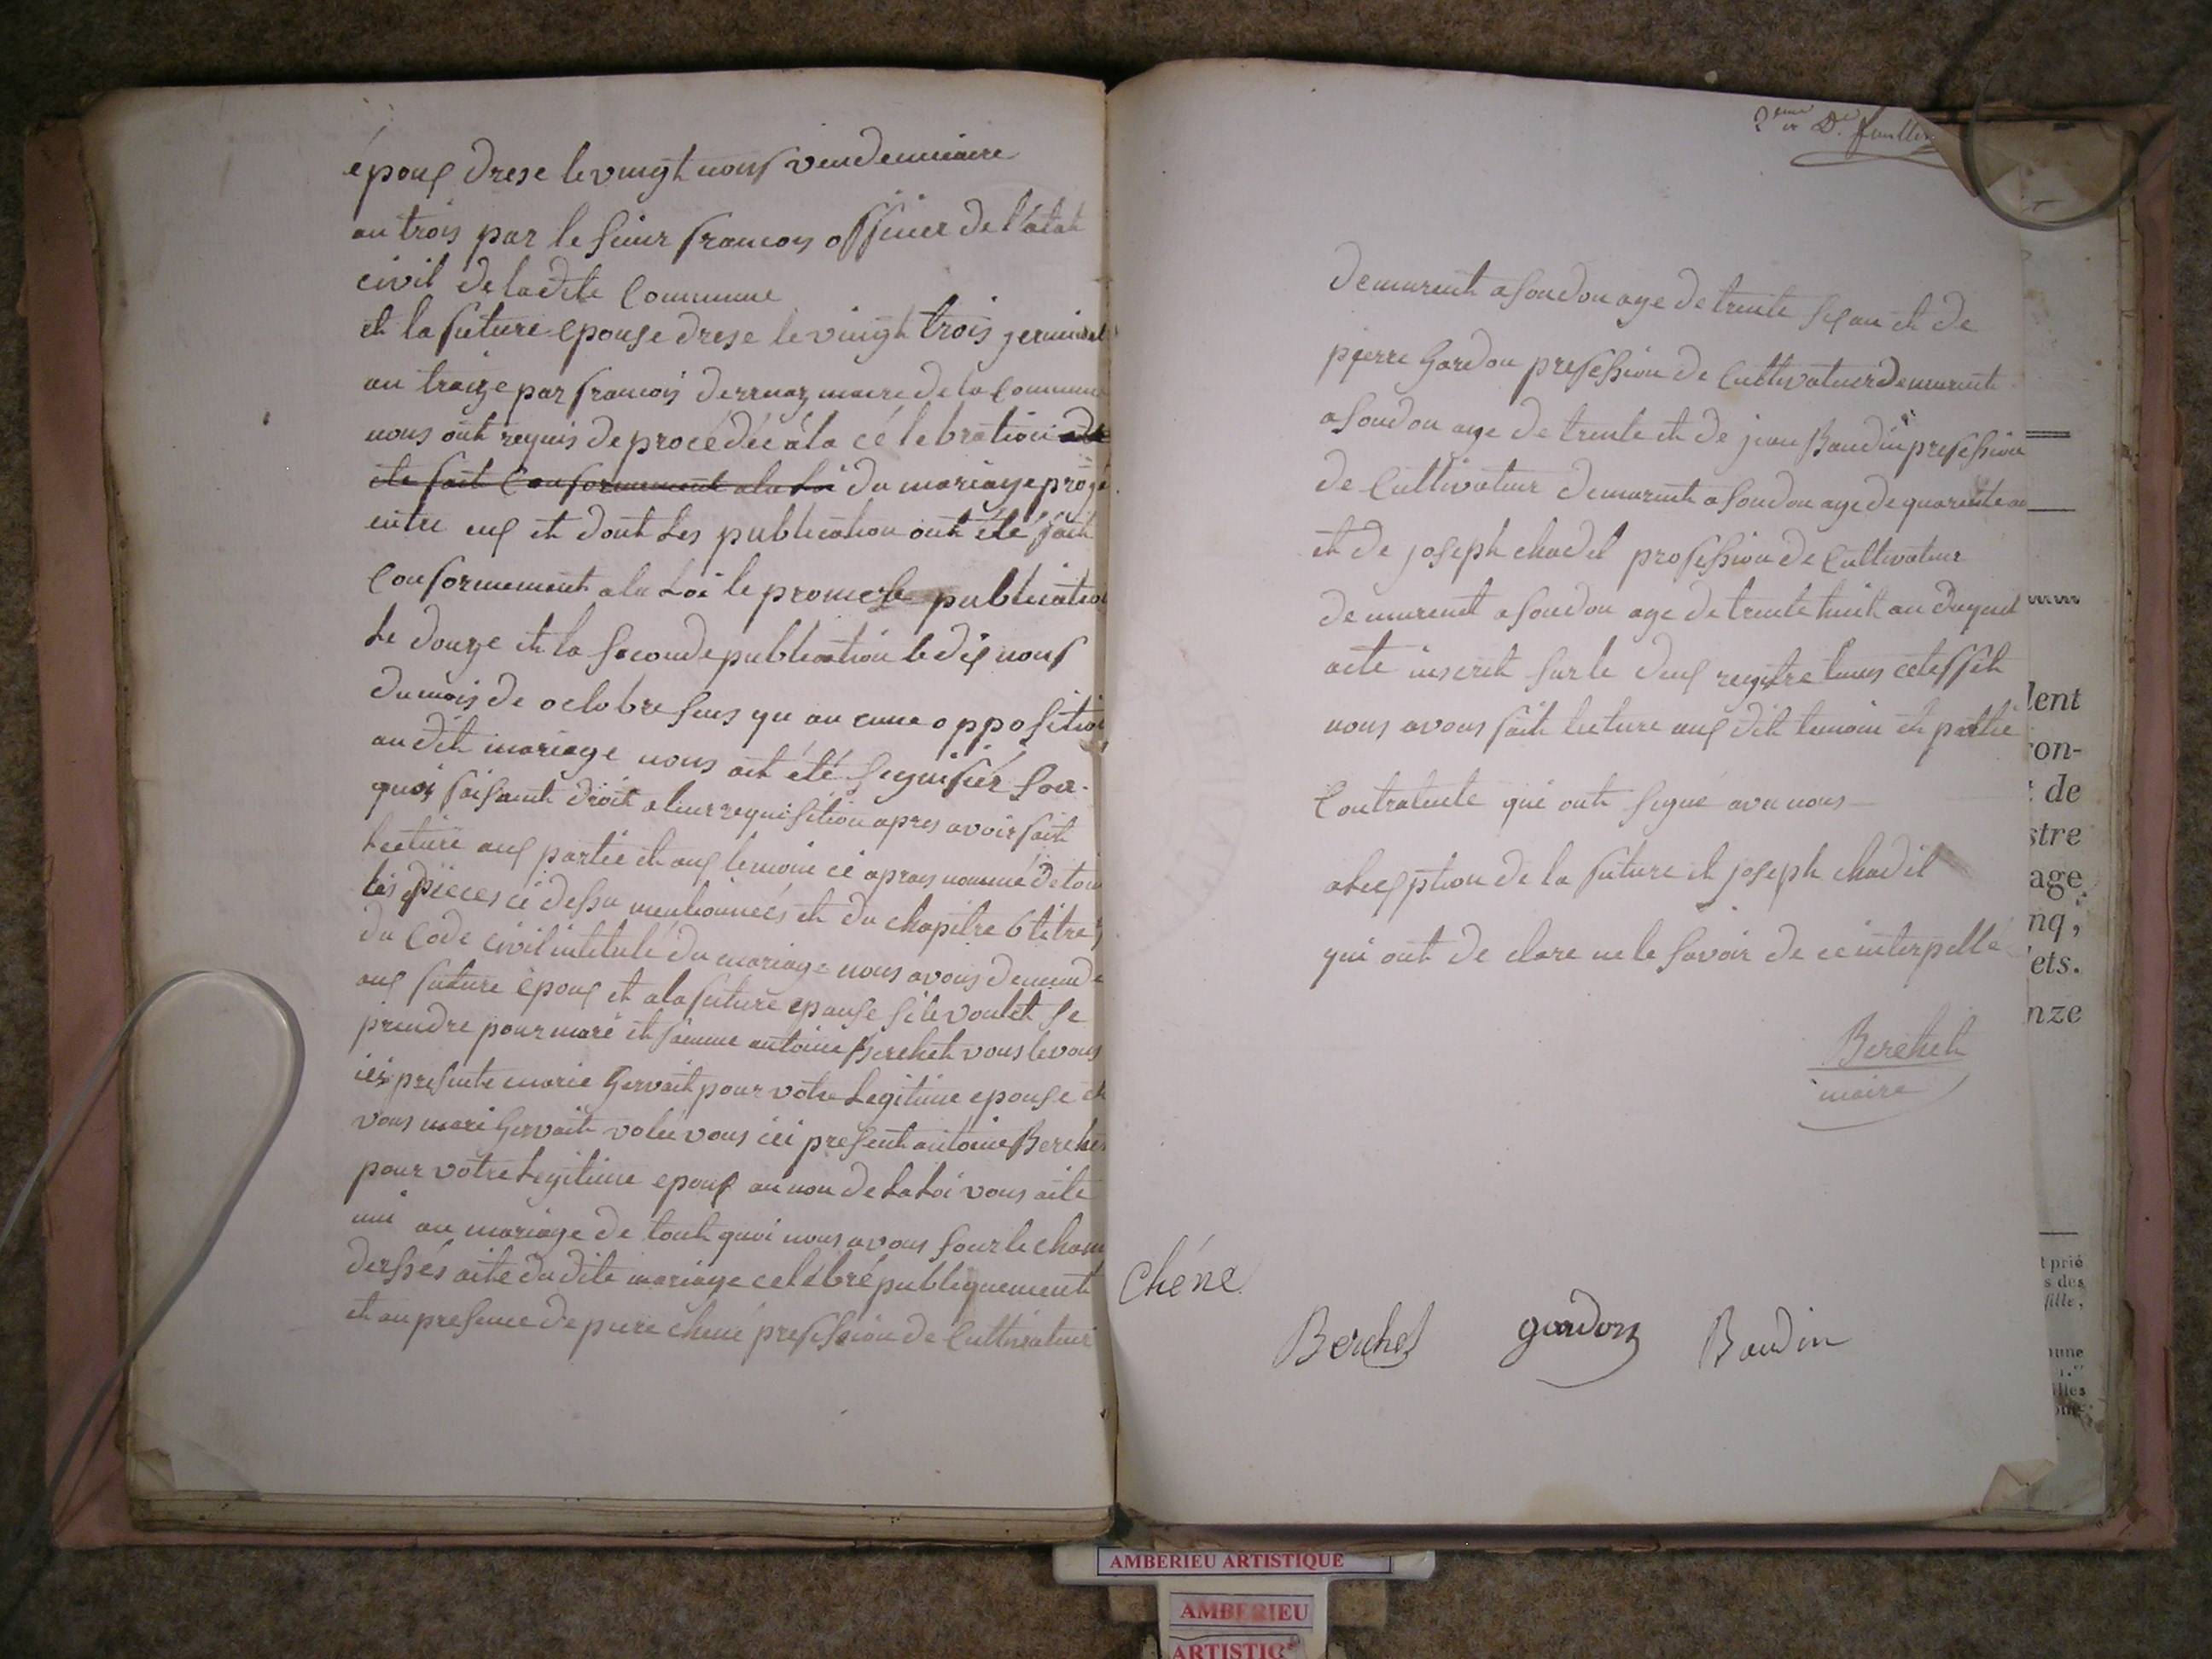 époux drese le vingt nouf vendemiaire
an trois par le sieur francois officier de l'état
civil de ladite Commune
et la future epouse drese le vingt trois germinal
an traize par francois derruaz maire de la Commune
nous ont requis de procédée à la célébration
ete fait Conformement ala Loi du mariage projé
entre eux et dont Les publication ont été fait
Conformement ala Loi le promere publication
Le douze et la seconde publication le dix nouf
du mois de octobre sens qu aucune opposition
audit mariage nous ait été signifiér sur
quoi faisant droit a leur requisition apres avoir fait
Lecture aux partie et aux temoin ci apres nommé de tou
les pieces ci dessu mentionneés et du chapitre 6 titre 5
du Code civil intitulé du mariage nous avons demande
aux future époux et ala future epouse si le voulet se
prendre pour mari et famme antoine Berchet vous le vous
ici presente marie Gervait pour votre Legitime epouse et
vous mari Gervait volée vous ici present antoine Berchet
pour votre Legitime epoux au nom de La Loi vous aite
uni au mariage de tout quoi nous avons sour le cham
dersses aite du dite mariage celébré publiquement
et an presence de piere chene profession de Cultivateur
2eme et De. feuillet
demurent a soudon age de trente six an et de
pierre Gardon profession de Cultivateur demurent
a soudon age de trente et de jean Baudin profession
de Cultivateur demurent a soudon age de quarente an
et de joseph chadel profession de Cultivateur
demurent a soudon age de trente huit an duquel
acte inscrit sur le deux registre tenus cet effet
nous avons fait lecture aux dit temoin et partie
Contratente qui ont signé avec nous
alexeption de la future et joseph chadel
qui ont de clare ne le savoir de ce interpellé
Berchet
maire
Chéne
Berchet gardon Baudin
lent
on-
de
stre
age
nq,
ets.
nze
t prié
s des
fille,
mune
lles
AMBERIEU ARTISTIQUE
AMBERIEU
ARTISTIQ